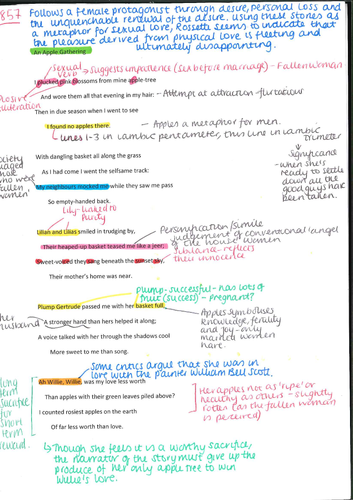 1857
Follows a female protagonist through desire, personal loss and
the unquenchable renewal of the desire. Using these stories as
a metaphor for sexual love, Rossetti seems to indicate that
the pleasure derived from physical love is fleeting and
ultimately disappointing.
An Apple Gathering
Sexual verb → Suggests impatience (sex before marriage) - Fallen woman
I plucked pink blossoms from mine apple-tree
And wore them all that evening in my hair: - Attempt at attraction - flirtatious
Plosive alliteration
Then in due season when I went to see
I found no apples there. - Apples a metaphor for men.
↳ Lines 1-3 in iambic pentameter, this line in iambic trimeter
↓ Significance
- when she's ready to settle down all the good guys have been taken.
With dangling basket all along the grass
As I had come I went the selfsame track:
My neighbours mocked me while they saw me pass
So empty-handed back.
society
who
fallen women
lily - linked to purity
Lilian and Lilias smiled in trudging by,
Their heaped-up basket teased me like a jeer;
Personification/simile
judgement of conventional 'angel of the house' women
Sweet-voiced they sang beneath the sunset sky,
Sibilance - reflects their innocence
Their mother's home was near.
plump - successful - has lots of fruit (success) - pregnant?
Plump Gertrude passed me with her basket full,
A stronger hand than hers helped it along;
her husband
A voice talked with her through the shadows cool
More sweet to me than song.
Apples symbolises knowledge, fertility and joy - only married women have.
Some critics argue that she was in
love with the painter William Bell Scott,
Ah Willie, Willie, was my love less worth
Than apples with their green leaves piled above?
I counted rosiest apples on the earth
Of far less worth than love.
Her apples not as 'ripe' or healthy as others - slightly rotten (as the fallen woman is perceived)
long term sacrifice for short term reward.
↳ Though she feels it is a worthy sacrifice,
the narrator of the story must give up the
produce of her only apple tree to win
Willie's love.